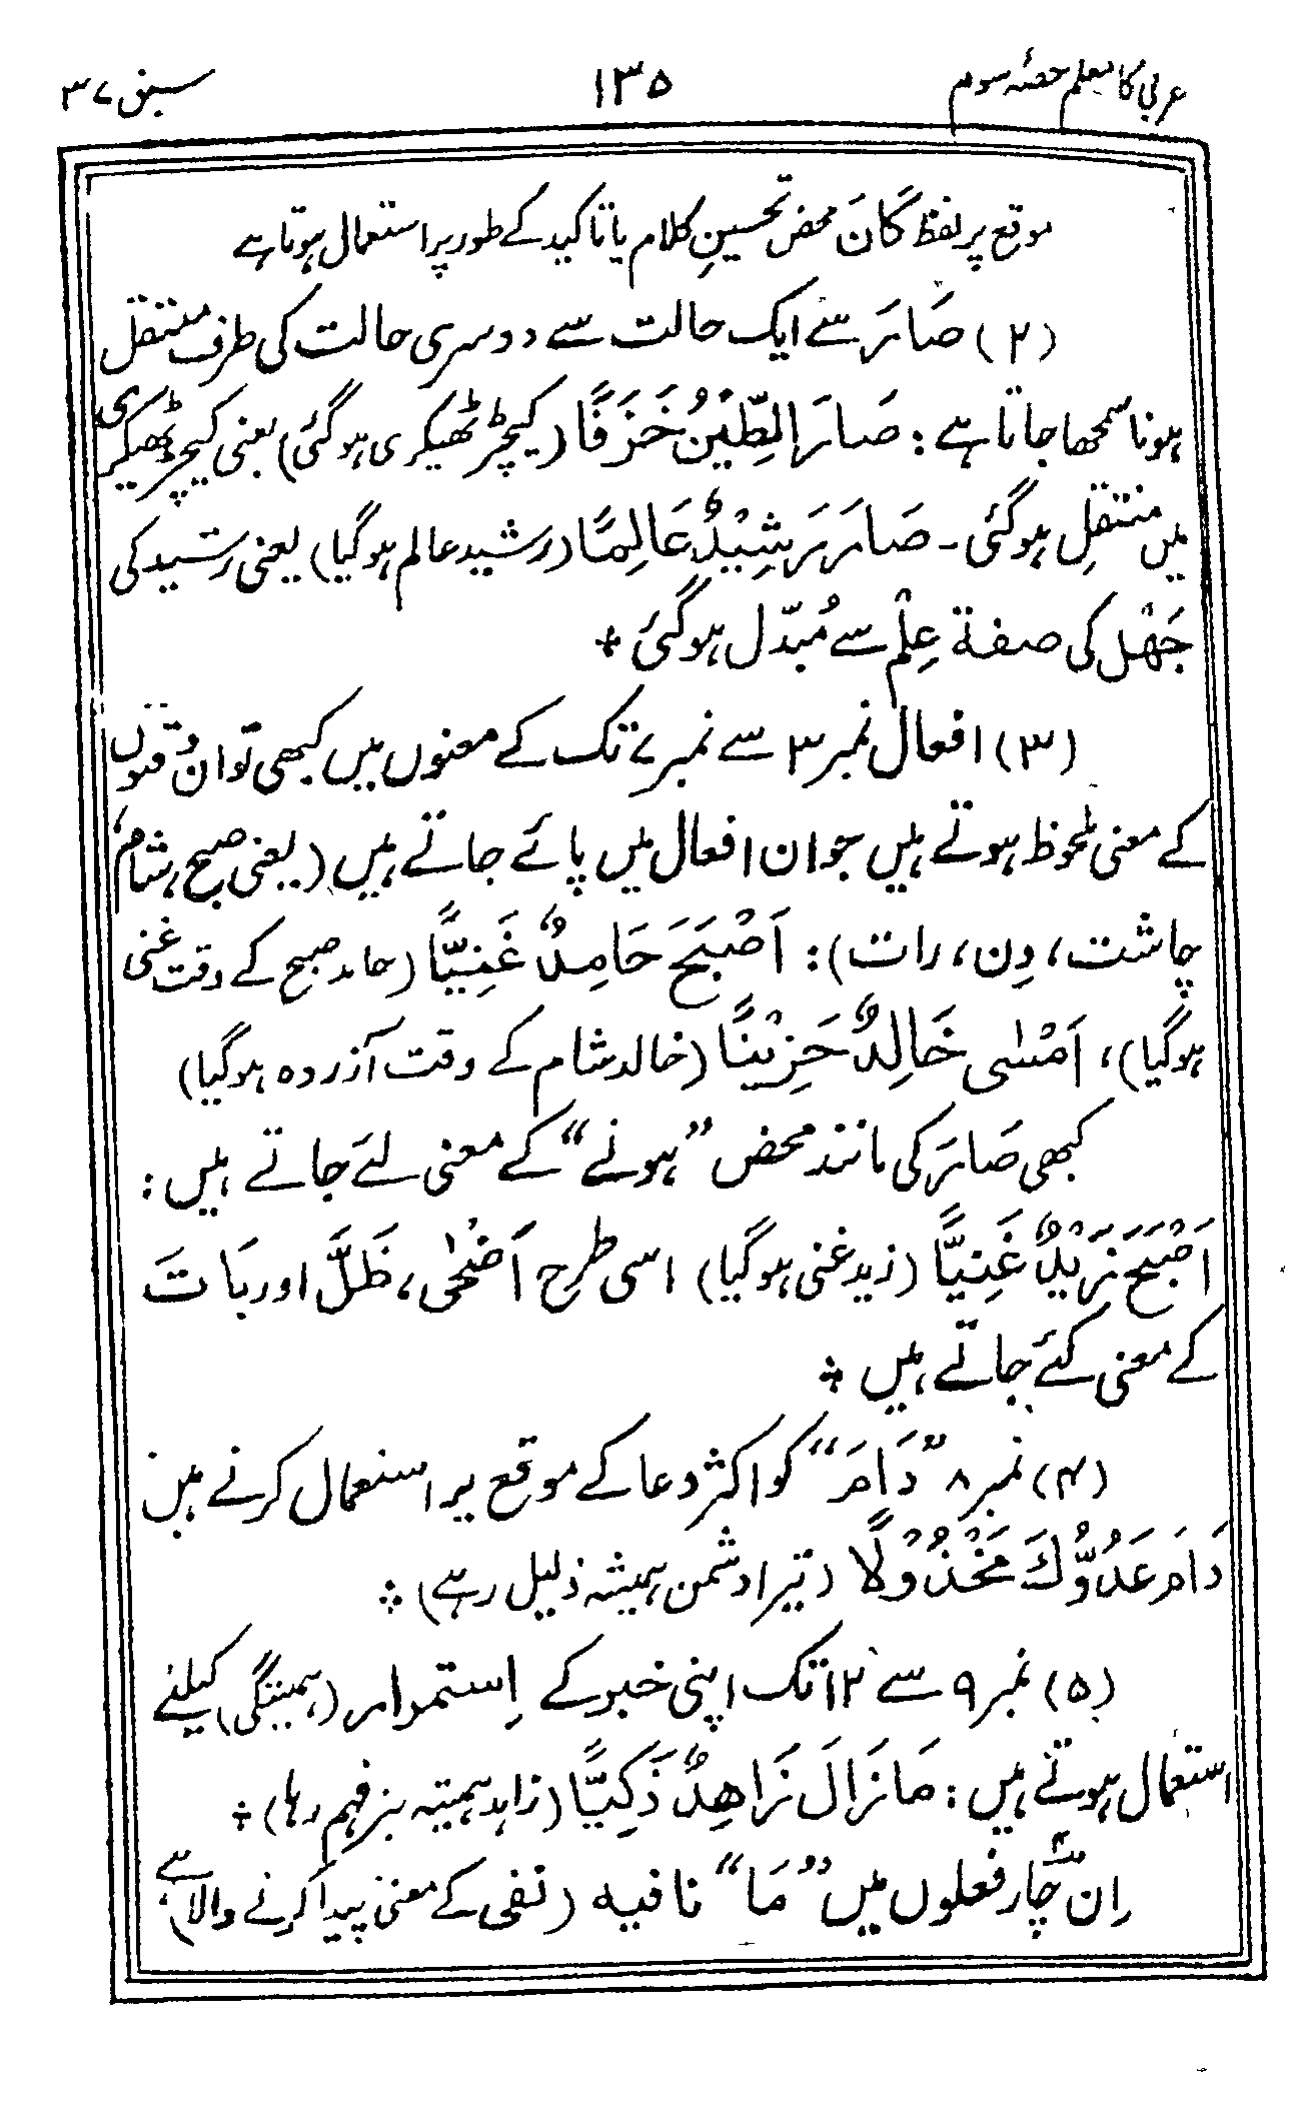 عربی کا معلم حصۂ سوم ۱۳۵ سبق ۳۷
موقع پر لفظ كَانَ محض تحسینِ کلام یا تاکید کے طور پر استعمال ہوتا ہے
(۲) صَارَ سے ایک حالت سے دوسری حالت کی طرف منتقل
ہونا سمجھا جاتا ہے : صَارَ الطِّيْنُ خَزَفًا (کیچڑ ٹھیکری ہو گئی) یعنی کیچڑ ٹھیکری
میں منتقِل ہو گئی ۔ صَارَ رَشِيْدٌ عَالِمًا (رشید عالم ہو گیا) یعنی رشید کی
جَهْل کی صفة عِلْم سے مُبدّل ہو گئی ٭
(۳) افعال نمبر ۳ سے نمبر ۷ تک کے معنوں میں کبھی تو ان وقتوں
کے معنی ملحوظ ہوتے ہیں جو ان افعال میں پائے جاتے ہیں (یعنی صبح، شام،
چاشت، دِن، رات) : اَصْبَحَ حَامِدٌ غَنِيًّا (حامد صبح کے وقت غنی
ہو گیا)، اَمْسٰى خَالِدٌ حَزِيْنًا (خالد شام کے وقت آزردہ ہو گیا)
کبھی صَارَ کی مانند محض ”ہونے“ کے معنی لئے جاتے ہیں :
اَصْبَحَ زَيْدٌ غَنِيًّا (زید غنی ہو گیا) اسی طرح اَضْحٰى، ظَلَّ اور بَاتَ
کے معنی کئے جاتے ہیں ٭
(۴) نمبر ۸ ”دَامَ“ کو اکثر دعا کے موقع پر استعمال کرتے ہیں
دَامَ عَدُوُّكَ مَخْذُوْلًا (تیرا دشمن ہمیشہ ذلیل رہے) ٭
(۵) نمبر ۹ سے ۱۲ تک اپنی خبر کے اِستمرار (ہمیشگی) کیلئے
استعمال ہوتے ہیں : مَا زَالَ زَاهِدٌ ذَكِيًّا (زاہد ہمیشہ تیز فہم رہا) ٭
اِن چار فعلوں میں ”مَا“ نافیه (نفی کے معنی پیدا کرنے والا) ہے